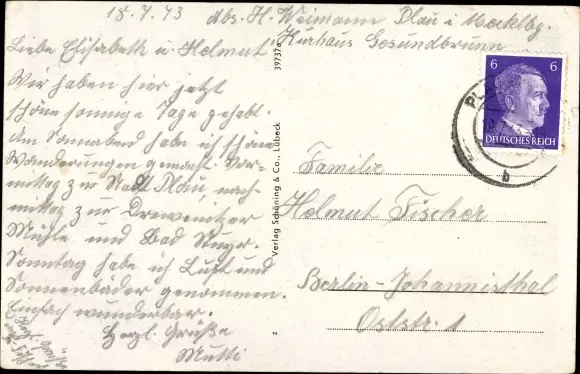 18.4.43 Abs. H. Weimann Plau i Mecklbg.
Kurhaus Gesundbrunn
Liebe Elisabeth u. Helmut
Wir haben hier jetzt
schöne sonnige Tage gehabt.
Am Sonnabend habe ich schöne
Wanderungen gemacht. Vor-
mittag zur Stadt Plau, nach-
mittag zur Drewenitzer
Mühle und Bad Stuer.
Sonntag habe ich Luft und
Sonnenbäder genommen.
Einfach wunderbar.
Herzl. Grüße
Mutti
Herzl. Grüße
39737
Verlag Schöning & Co., Lübeck
z
6 6
DEUTSCHES REICH
PL
b
Familie
Helmut Fischer
Berlin-Johannisthal
Oststr. 1